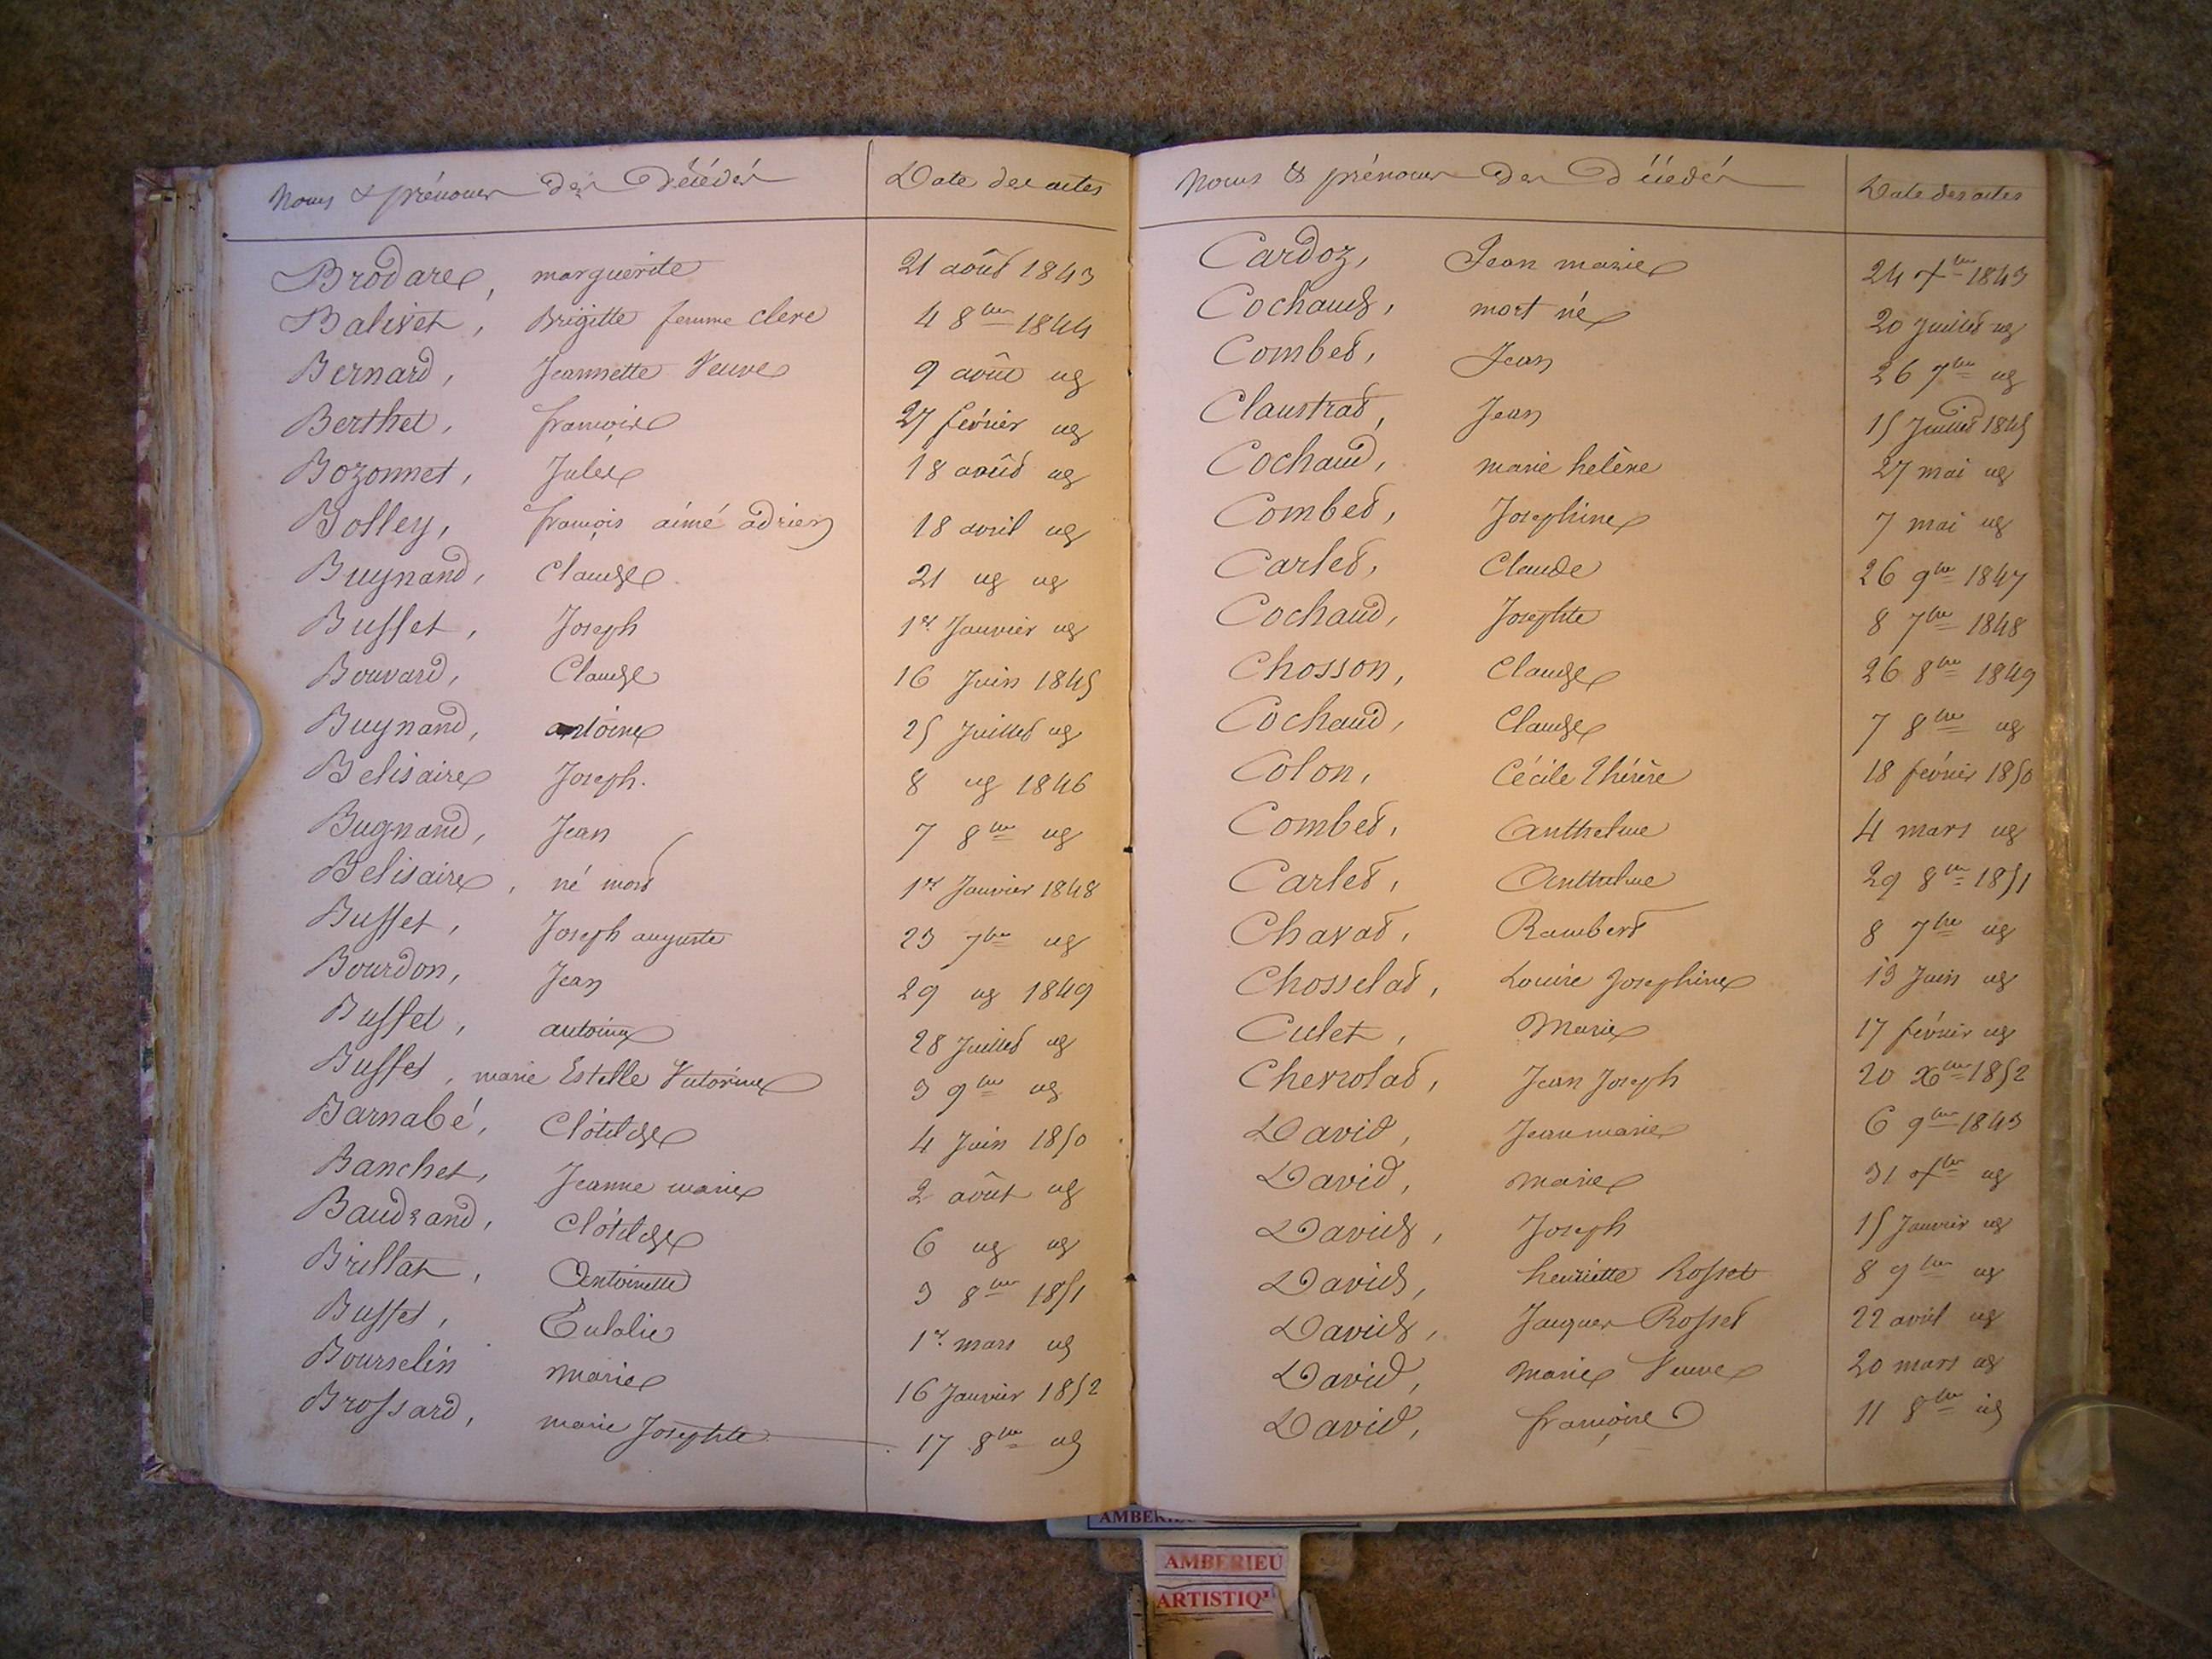 Noms & prénoms des Décédés Date des actes
Brodare, marguerite 21 août 1843
Balivet, Brigitte femme clerc 4 8bre 1844
Bernard, Jeannette Veuve 9 août ug
Berthet, françoise 27 février ug
Bozonnet, Jules 18 août ug
Bolley, françois aimé adrien 18 avril ug
Buynand, Claude 21 ug ug
Buffet, Joseph 1er Janvier ug
Bouvard, Claude 16 Juin 1845
Buynand, antoine 25 Juillet ug
Belisaire Joseph. 8 ug 1846
Bugnand, Jean 7 8bre ug
Belisaire, né mort 1er Janvier 1848
Buffet, Joseph auguste 23 7bre ug
Bourdon, Jean 29 ug 1849
Buffet, antoine 28 Juillet ug
Buffet, marie Estelle Victorine 3 9bre ug
Barnabé, Clotilde 4 Juin 1850
Banchet, Jeanne marie 2 août ug
Baudrand, Clotilde 6 ug ug
Brillat, Antoinette 3 8bre 1851
Buffet, Eulalie 1er mars ug
Bourselin marie 16 Janvier 1852
Brossard, marie Josephte 17 8bre ug
Noms & prénoms des Décédés Date des actes
Cardoz, Jean marie 24 Xbre 1843
Cochaud, mort né 20 Juillet ug
Combet, Jean 26 7bre ug
Claustrat, Jean 15 Juillet 1845
Cochaud, marie helène 27 mai ug
Combet, Josephine 7 mai ug
Carlet, Claude 26 9bre 1847
Cochaud, Josephte 8 7bre 1848
Chosson, Claude 26 8bre 1849
Cochaud, Claude 7 8bre ug
Colon, Cécile Thérèse 18 février 1850
Combet, Anthelme 4 mars ug
Carlet, Anthelme 29 8bre 1851
Chavat, Rambert 8 7bre ug
Chosselat, Louise Josephine 13 Juin ug
Culet, Marie 17 février ug
Chevrolat, Jean Joseph 20 Xbre 1852
David, Jean marie 6 9bre 1843
David, marie 31 Xbre ug
David, Joseph 15 Janvier ug
David, henriette Rosset 8 9bre ug
David, Jacques Rosset 22 avril ug
David, Marie Veuve 20 mars ug
David, françoise 11 8bre ug
AMBERIEU
ARTISTIQ